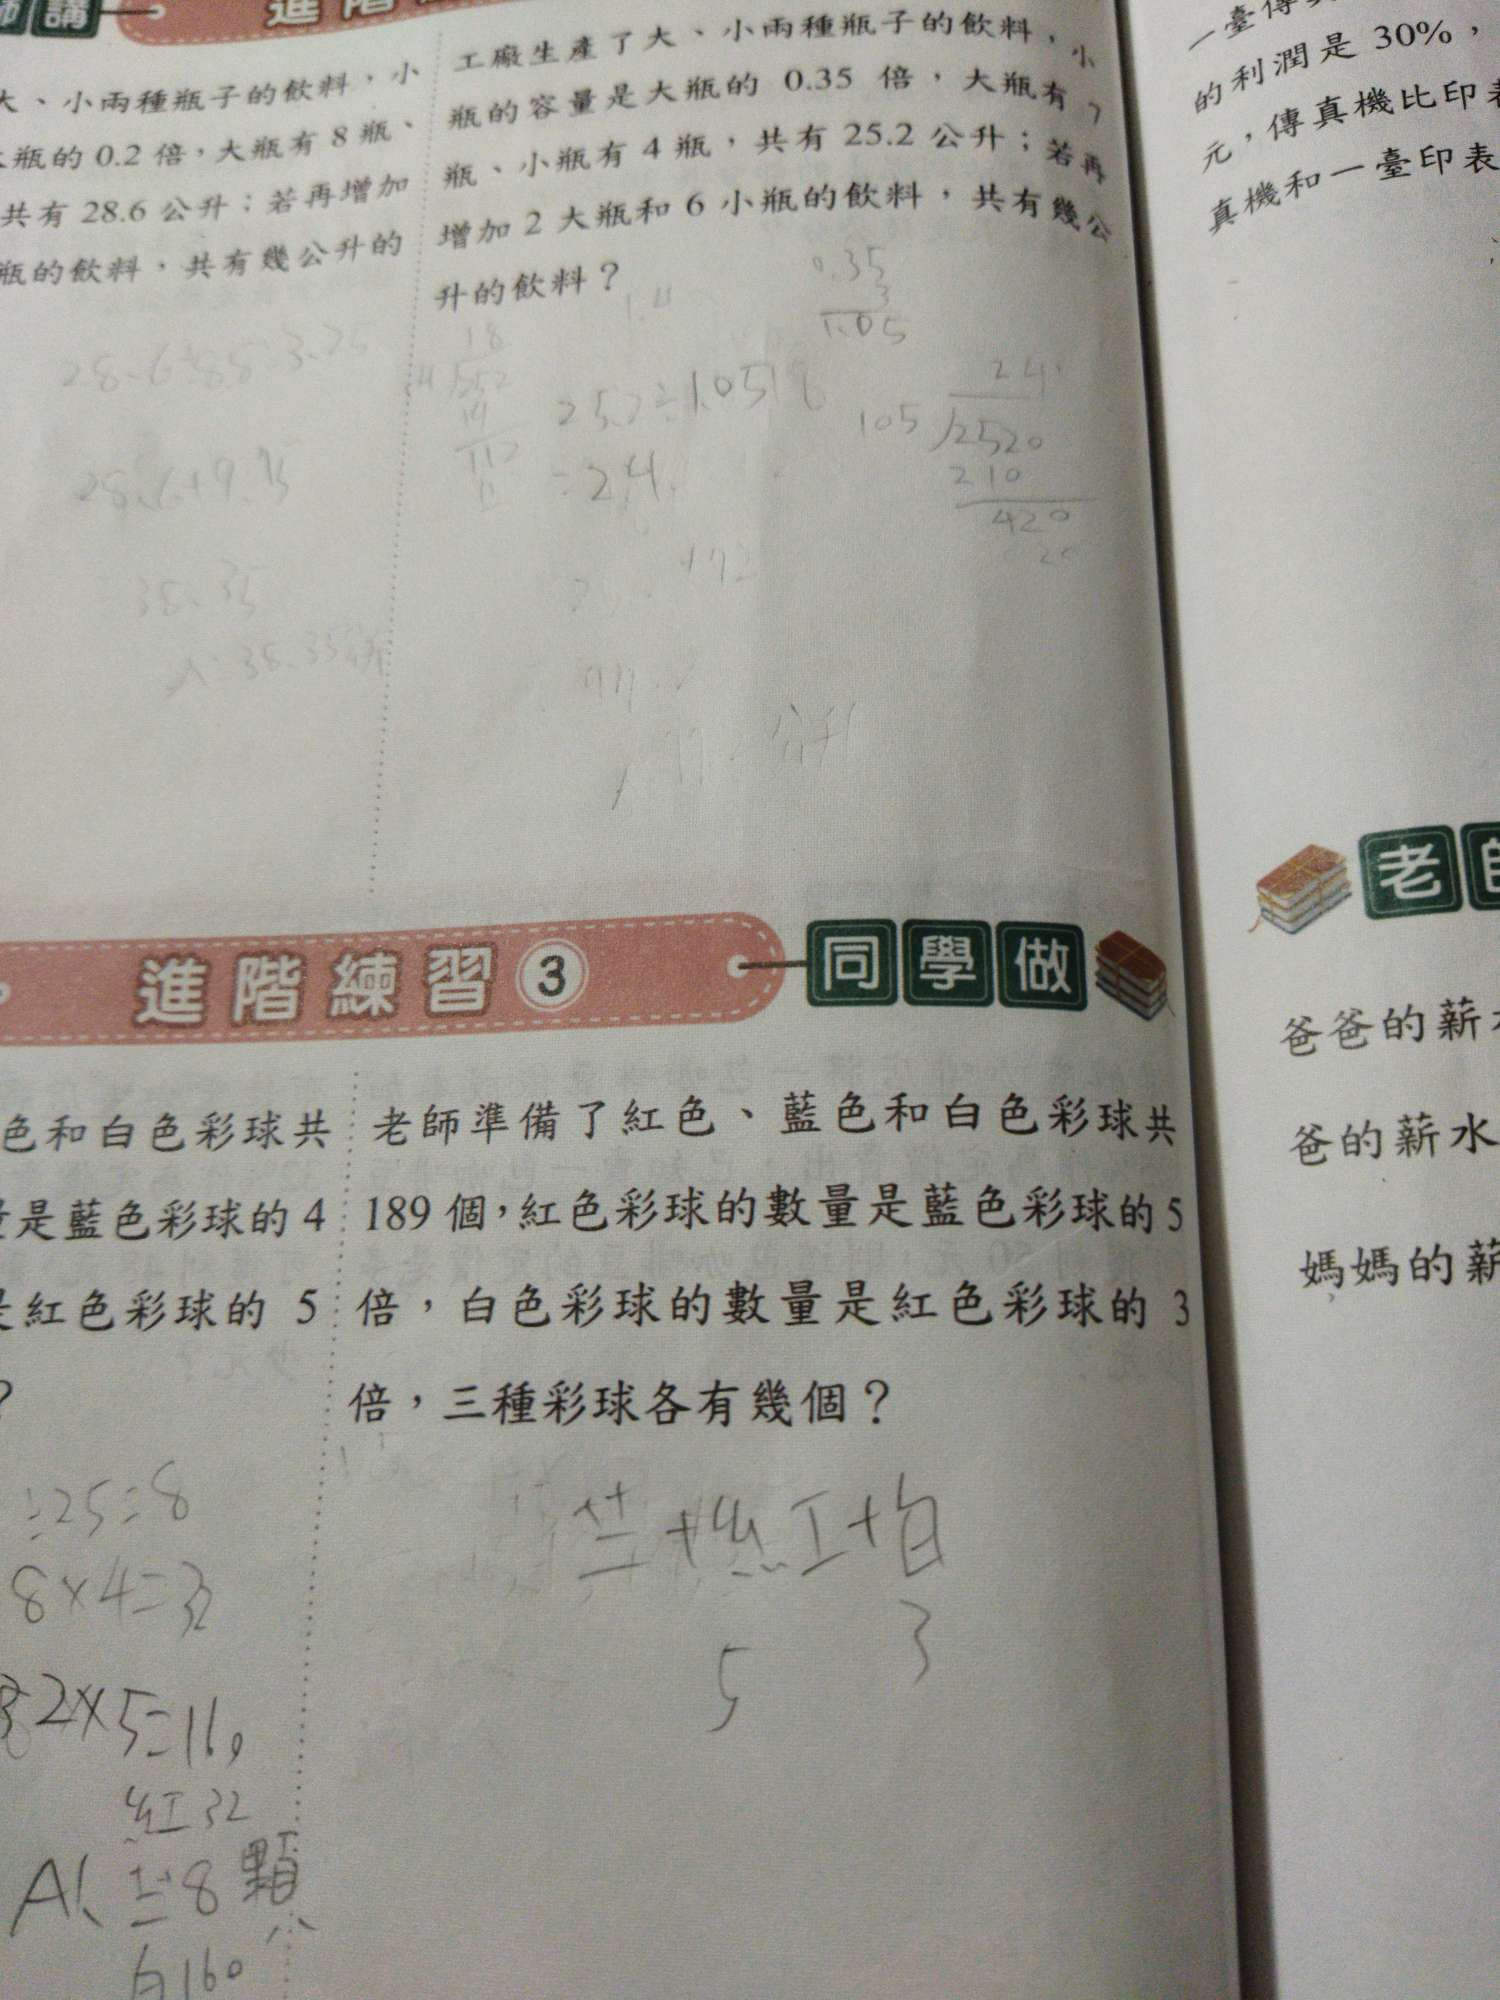 師講
進階
大、小兩種瓶子的飲料，小
瓶的 0.2 倍，大瓶有 8 瓶、
共有 28.6 公升；若再增加
瓶的飲料，共有幾公升的
28.6÷8.8=3.25
28.6+9.75
38.35
A:38.35公升
工廠生產了大、小兩種瓶子的飲料，小
瓶的容量是大瓶的 0.35 倍，大瓶有 7
瓶、小瓶有 4 瓶，共有 25.2 公升；若再
增加 2 大瓶和 6 小瓶的飲料，共有幾公
升的飲料？
0.35
3
1.05
18
25.2÷1.05
=24
24
105
2520
210
420
公升
進階練習 3
同學做
色和白色彩球共
量是藍色彩球的 4
是紅色彩球的 5
？
÷25=8
8×4=32
32×5=160
紅32
A、藍8顆
白160
老師準備了紅色、藍色和白色彩球共
189 個，紅色彩球的數量是藍色彩球的 5
倍，白色彩球的數量是紅色彩球的 3
倍，三種彩球各有幾個？
紅+白
5
3
一臺傳真
的利潤是 30%，
元，傳真機比印表
真機和一臺印表
老師
爸爸的薪水
爸的薪水
媽媽的薪